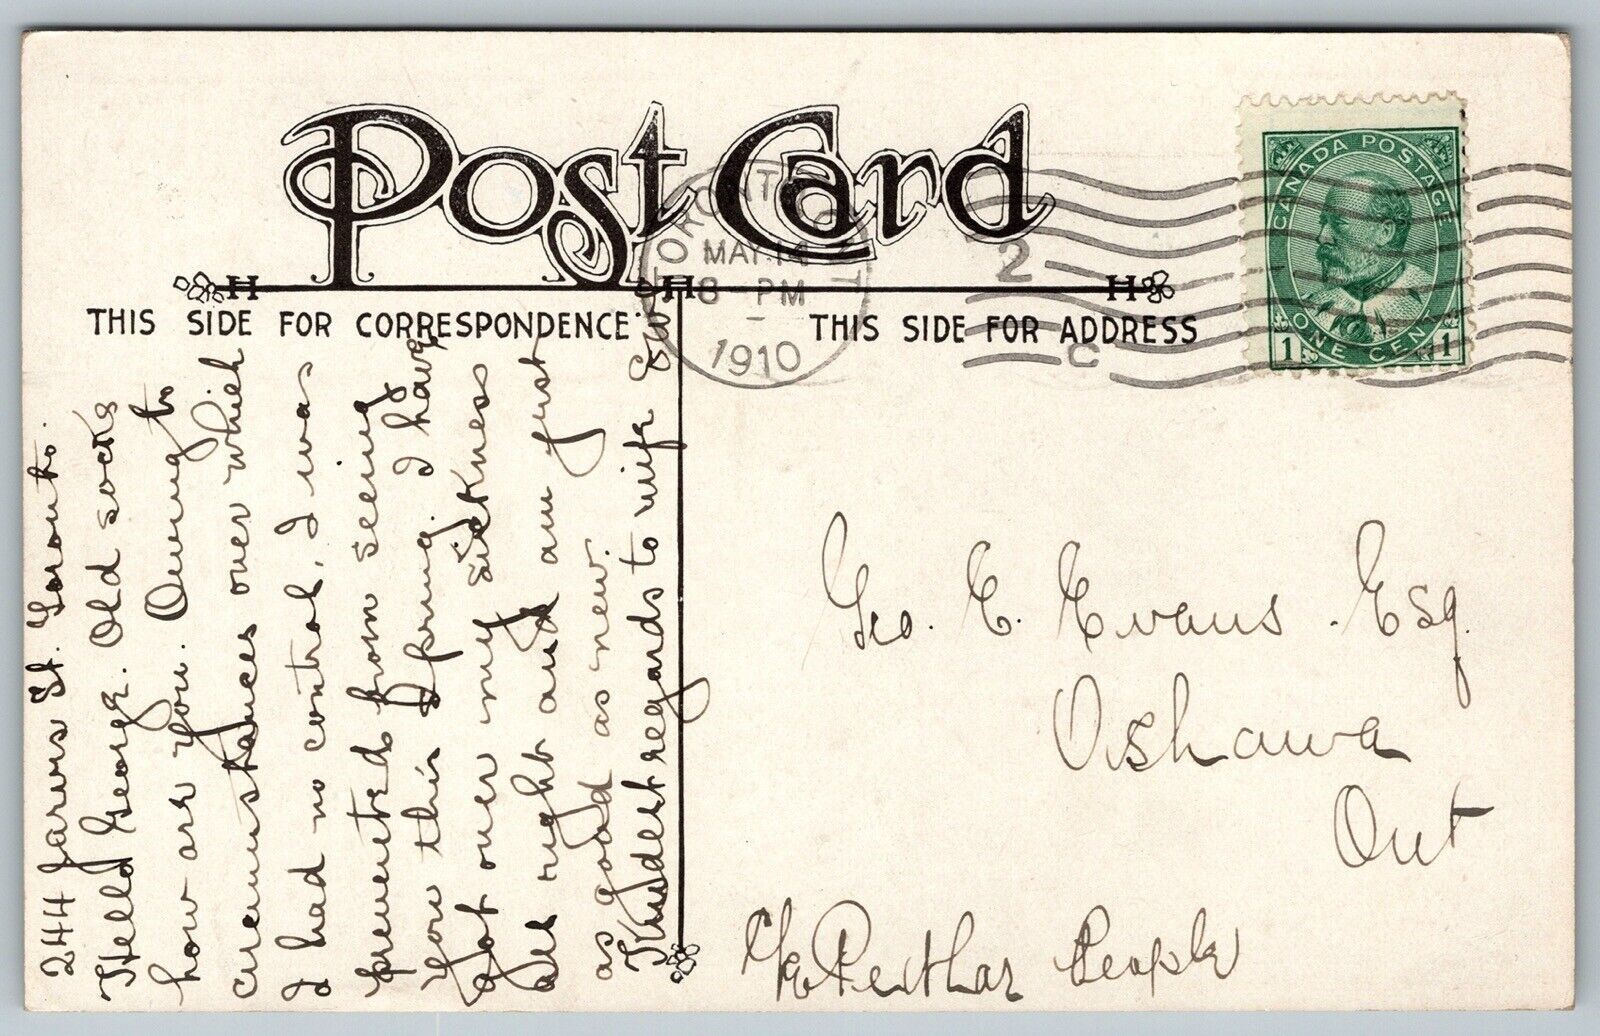 Post Card
THIS SIDE FOR CORRESPONDENCE
THIS SIDE FOR ADDRESS
TORONTO ONT
MAY 14
8 - PM
1910
2
C
CANADA POSTAGE
1 ONE CENT 1
244 Jarvis St. Toronto.
Hello George. Old socks
how are you. Owing to
circumstances over which
I had no control, I was
prevented from seeing
you this Spring. I have
got over my sickness
all right and am just
as good as new.
Kindest regards to wife
Geo. E. Evans. Esq.
Oshawa
Ont
People